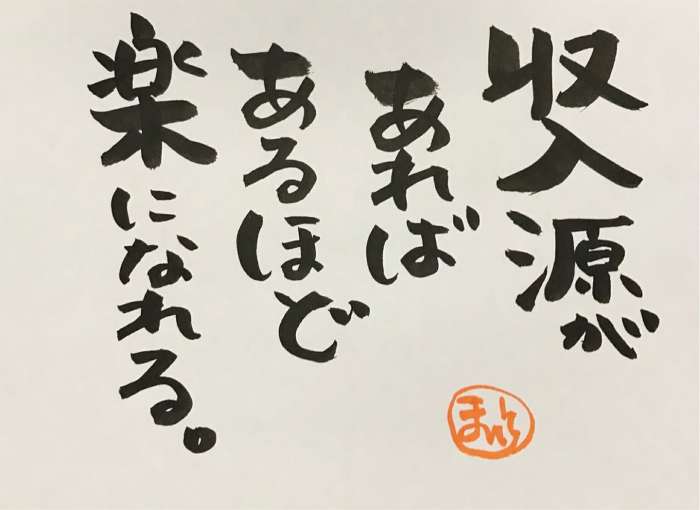 収入源が
あれば
あるほど
楽になれる。